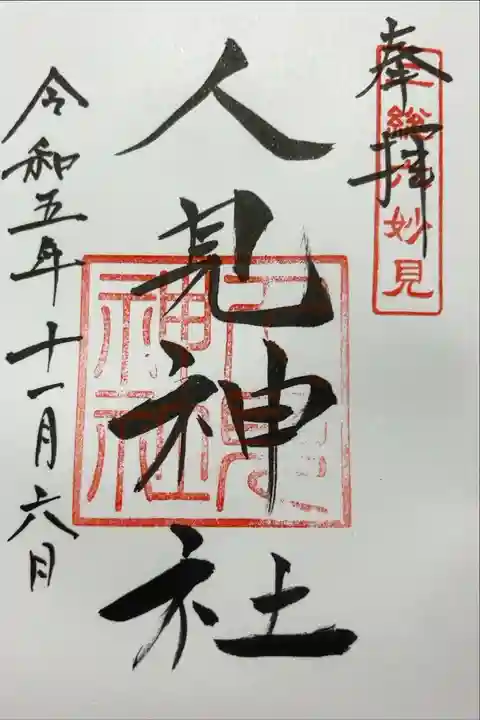 奉拝
総妙見
人見神社
人見神社
令和五年十一月六日